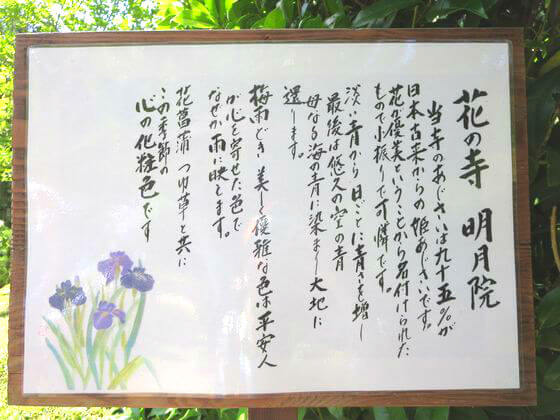 花の寺 明月院
当寺のあじさいは九十五%が
日本古来からの姫あじさいです。
花が優美ということから名付けられた
もので小振りです 憐です。
淡い青から 日ごとに青さを増し
最後は悠久の空の青
母なる海の青に染まり 大地に
還ります。
梅雨どき 美し優雅な色は平安人
が心を寄せた色で
なぜか雨に映えます。
花菖蒲 つゆ草と共に
この季節の
心の化粧色です